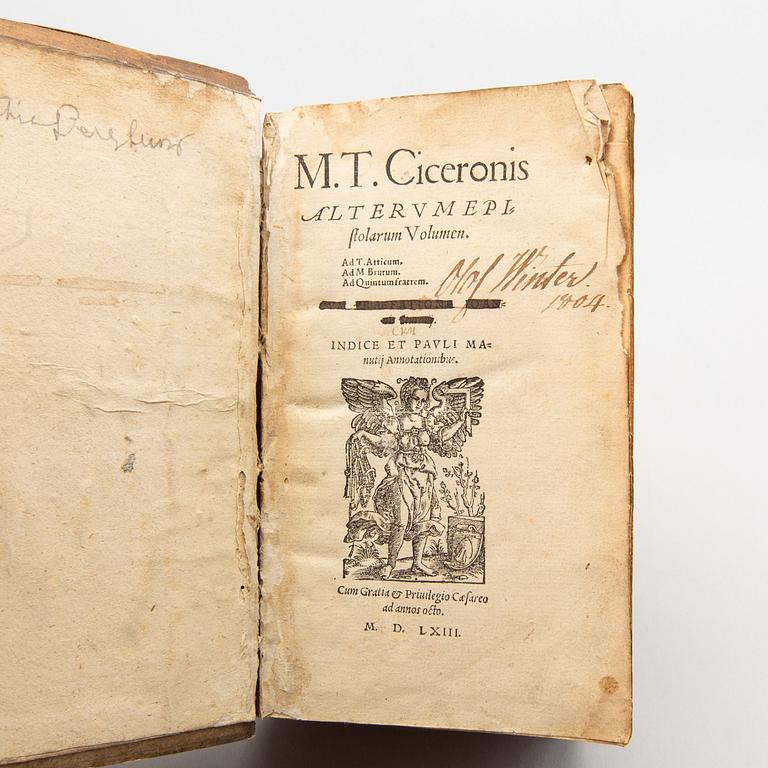 M. T. Ciceronis
ALTERVM EPI-
stolarum Volumen.
Ad T. Atticum.
Ad M Brutum.
Ad Quintum fratrem.
Olof Winter.
1804.
INDICE ET PAVLI MA=
nutij Annotationibus.
Cum Gratia & Priuilegio Cæsareo
ad annos octo.
M. D. LXIII.